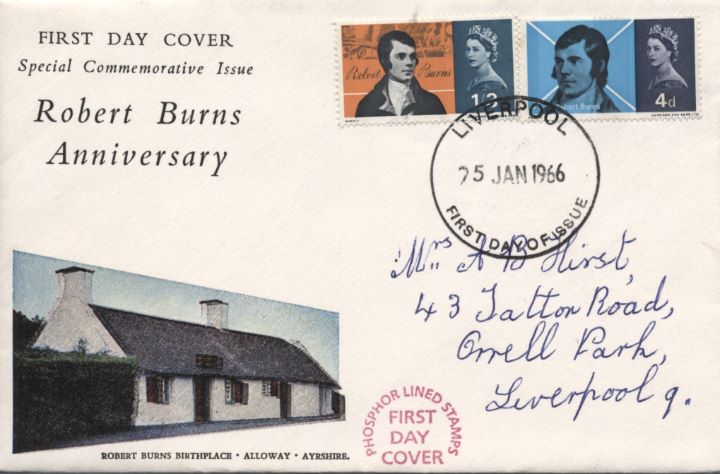 FIRST DAY COVER
Special Commemorative Issue
Robert Burns
Anniversary
Robert Burns
1/3
Robert Burns
4d
HARRISON AND SONS LTD
LIVERPOOL
25 JAN 1966
FIRST DAY OF ISSUE
Mrs A B Hirst,
43 Tatton Road,
Orrell Park,
Liverpool 9.
PHOSPHOR LINED STAMPS
FIRST
DAY
COVER
ROBERT BURNS BIRTHPLACE · ALLOWAY · AYRSHIRE.